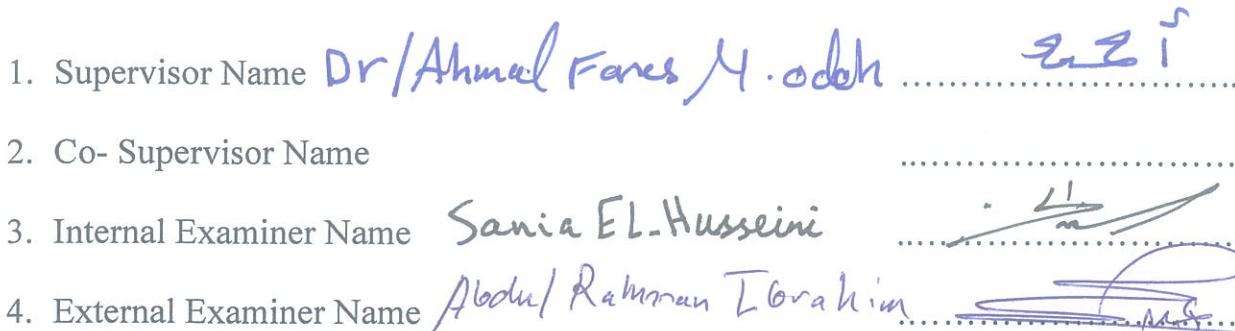 1. Supervisor Name Dr/Ahmad Fares M. odeh ..............................
2. Co- Supervisor Name ..............................
3. Internal Examiner Name Sania EL-Husseini ..............................
4. External Examiner Name Abdul Rahman Ibrahim ..............................